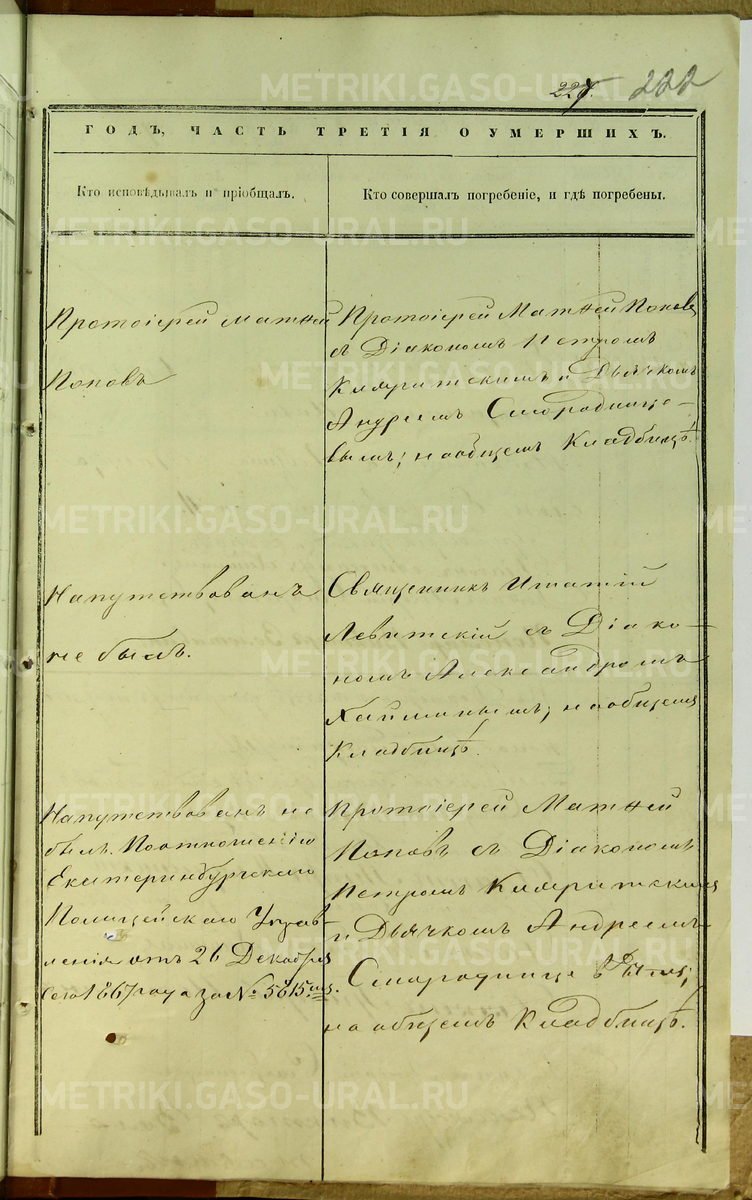 227. 222
ГОДЪ, ЧАСТЬ ТРЕТІЯ О УМЕРШИХЪ.
Кто исповѣдывалъ и пріобщалъ.
Кто совершалъ погребеніе, и гдѣ погребены.
Протоіерей Матѳей
Поповъ
Протоіерей Матѳей Поповъ
съ Діакономъ Петромъ
и Дьячкомъ
Андреемъ Смородинце-
вымъ; на общемъ Кладбищѣ.
Напутствованъ
не былъ.
Священникъ Игнатій
Левитскій съ Діако-
номъ Александромъ
на общемъ
Кладбищѣ.
Напутствованъ не
былъ. По отношенію
Екатеринбургскаго
Полицейскаго Управ-
ленія отъ 26 Декабря
сего 1867 года за № 5615.
Протоіерей Матѳей
Поповъ съ Діакономъ
Петромъ
и Дьячкомъ Андреемъ
Смородинцевымъ;
на общемъ Кладбищѣ.
METRIKI.GASO-URAL.RU